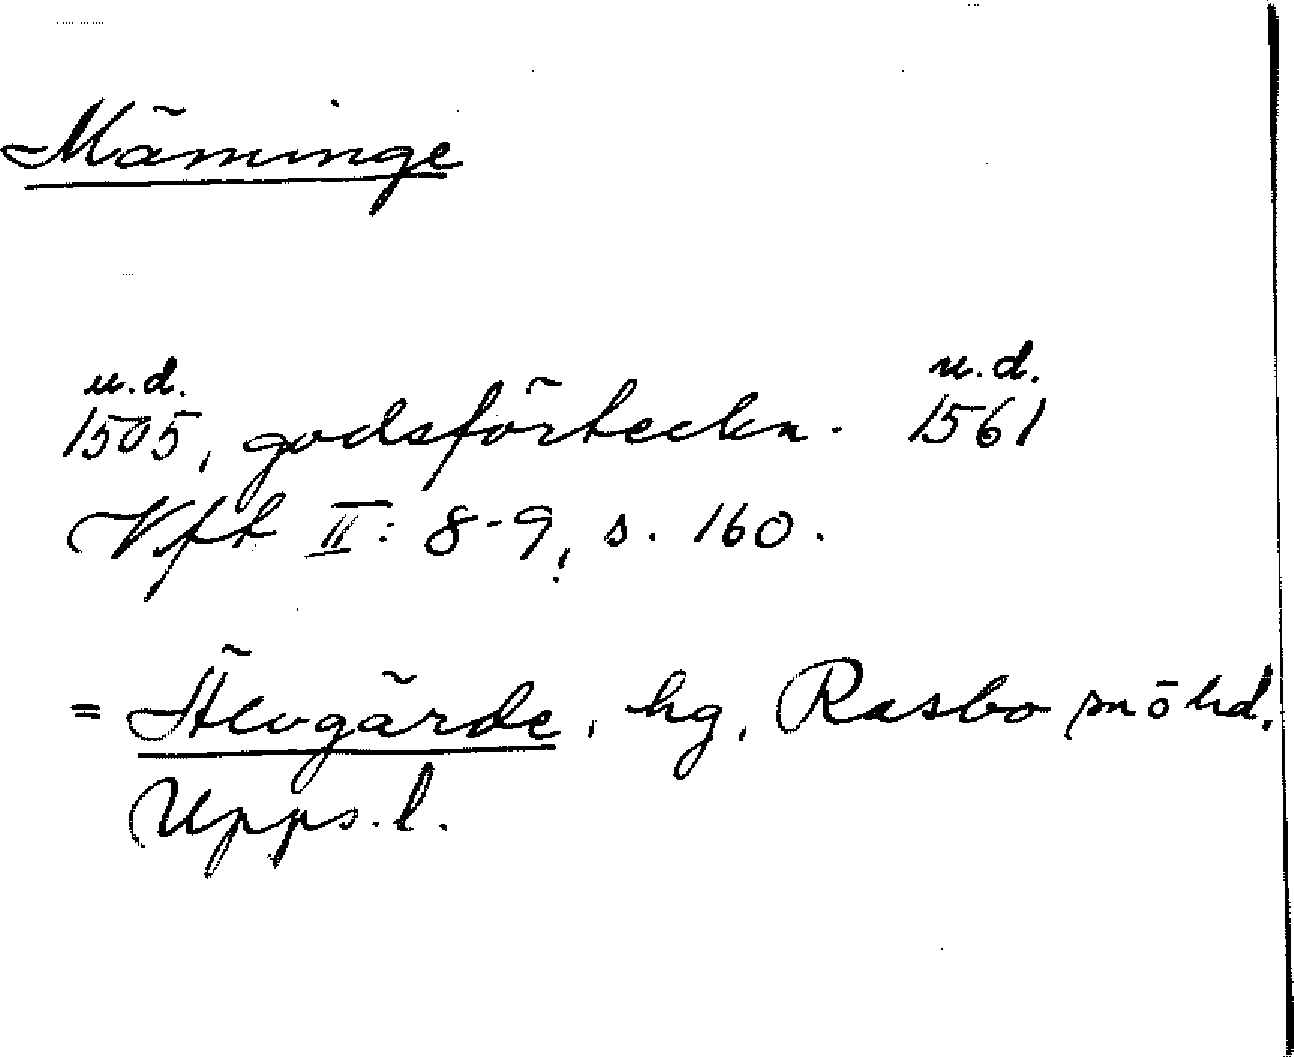 Mäninge
u.d. u.d.
1505, godsförteckn. 1561
Vft II: 8-9, s. 160.
= Älvgärde, hg, Rasbo sn o hd,
Upps. l.